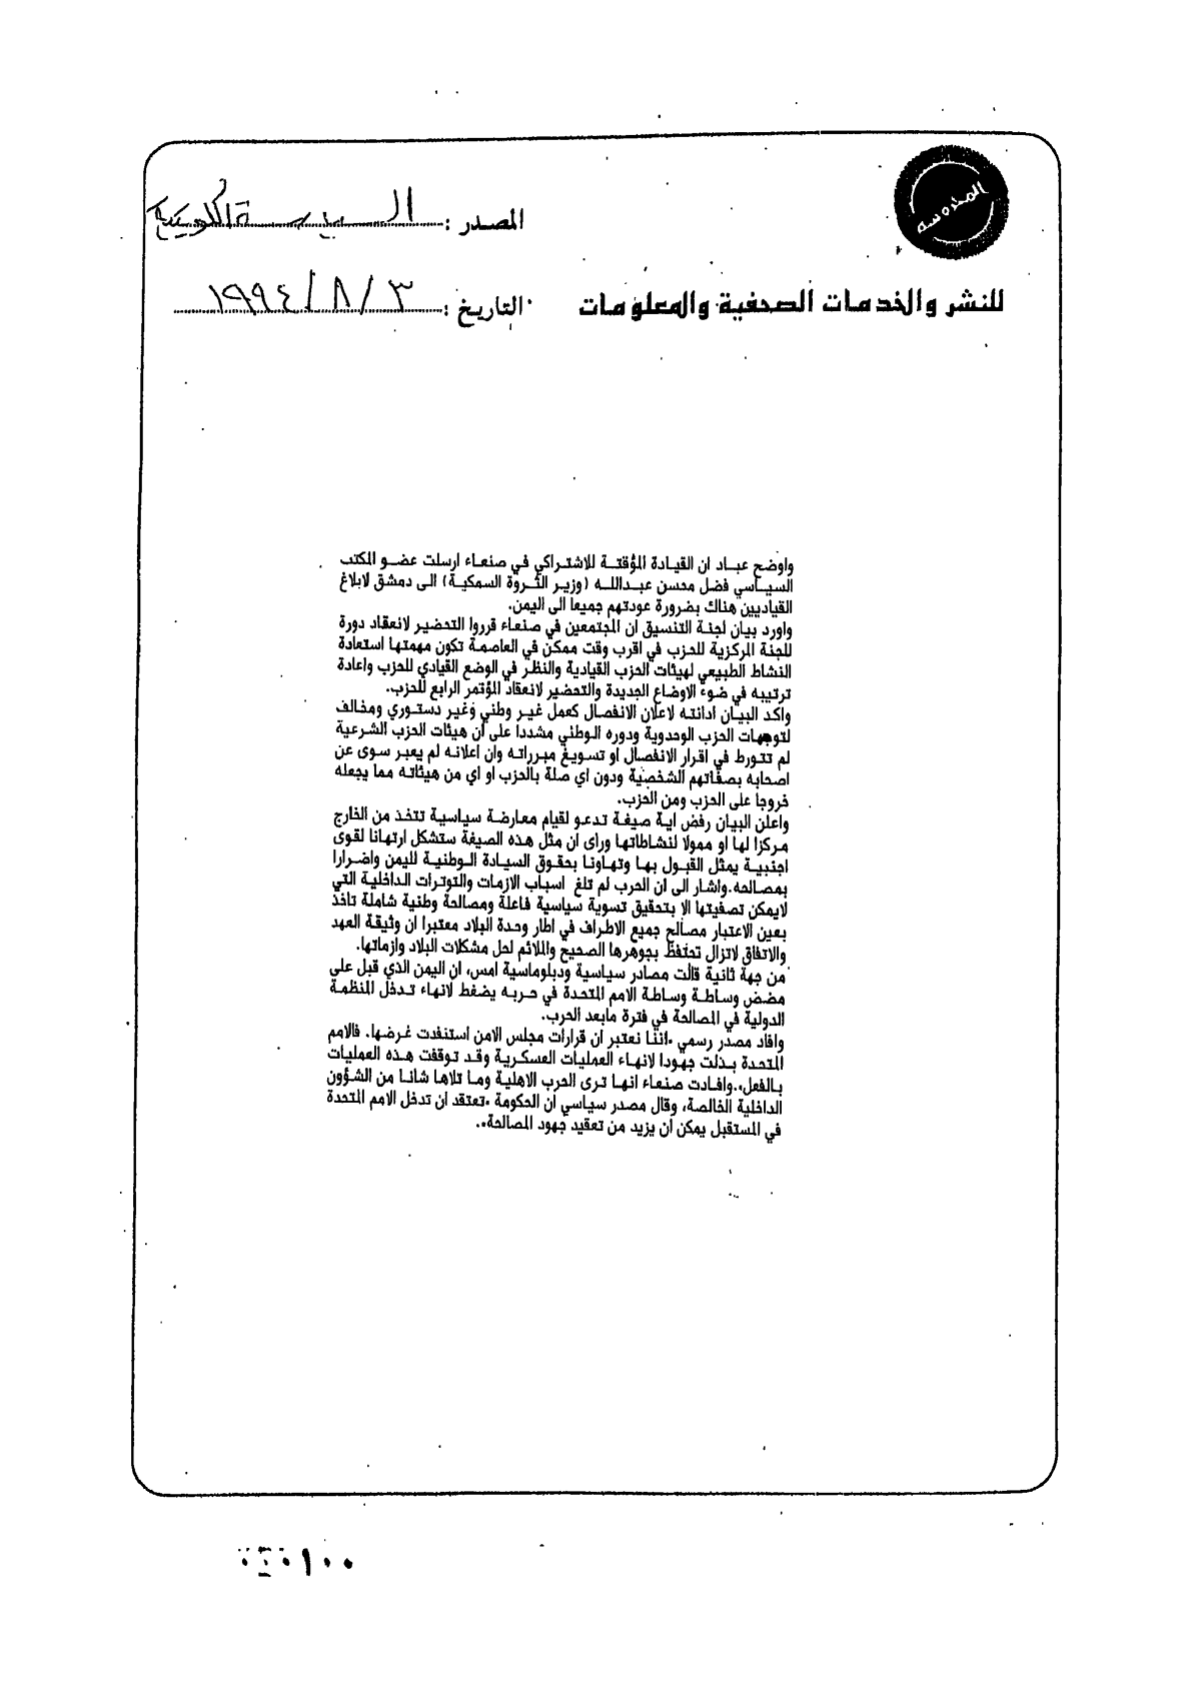 المدوسه
المصدر : السيسة الكويتية
للنشر والخدمات الصحفية والمعلومات
التاريخ : ٣ / ٨ / ١٩٩٤
واوضح عباد ان القيادة المؤقتة للاشتراكي في صنعاء ارسلت عضو المكتب
السياسي فضل محسن عبدالله (وزير الثروة السمكية) الى دمشق لابلاغ
القياديين هناك بضرورة عودتهم جميعا الى اليمن.
واورد بيان لجنة التنسيق ان المجتمعين في صنعاء قرروا التحضير لانعقاد دورة
للجنة المركزية للحزب في اقرب وقت ممكن في العاصمة تكون مهمتها استعادة
النشاط الطبيعي لهيئات الحزب القيادية والنظر في الوضع القيادي للحزب واعادة
ترتيبه في ضوء الاوضاع الجديدة والتحضير لانعقاد المؤتمر الرابع للحزب.
واكد البيان ادانته لاعلان الانفصال كعمل غير وطني وغير دستوري ومخالف
لتوجهات الحزب الوحدوية ودوره الوطني مشددا على أن هيئات الحزب الشرعية
لم تتورط في اقرار الانفصال او تسويغ مبرراته وان اعلانه لم يعبر سوى عن
اصحابه بصفاتهم الشخصية ودون اي صلة بالحزب او اي من هيئاته مما يجعله
خروجا على الحزب ومن الحزب.
واعلن البيان رفض اية صيغة تدعو لقيام معارضة سياسية تتخذ من الخارج
مركزا لها او ممولا لنشاطاتها وراى ان مثل هذه الصيغة ستشكل ارتهانا لقوى
اجنبية يمثل القبول بها وتهاونا بحقوق السيادة الوطنية لليمن واضرارا
بمصالحه.واشار الى ان الحرب لم تلغ اسباب الازمات والتوترات الداخلية التي
لايمكن تصفيتها الا بتحقيق تسوية سياسية فاعلة ومصالحة وطنية شاملة تاخذ
بعين الاعتبار مصالح جميع الاطراف في اطار وحدة البلاد معتبرا ان وثيقة العهد
والاتفاق لاتزال تحتفظ بجوهرها الصحيح والملائم لحل مشكلات البلاد وازماتها.
من جهة ثانية قالت مصادر سياسية ودبلوماسية امس، ان اليمن الذي قبل على
مضض وساطة وساطة الامم المتحدة في حربه يضغط لانهاء تدخل المنظمة
الدولية في المصالحة في فترة مابعد الحرب.
وافاد مصدر رسمي «اننا نعتبر ان قرارات مجلس الامن استنفدت غرضها. فالامم
المتحدة بذلت جهودا لانهاء العمليات العسكرية وقد توقفت هذه العمليات
بالفعل».وافادت صنعاء انها ترى الحرب الاهلية وما تلاها شانا من الشؤون
الداخلية الخالصة، وقال مصدر سياسي ان الحكومة «تعتقد ان تدخل الامم المتحدة
في المستقبل يمكن ان يزيد من تعقيد جهود المصالحة».